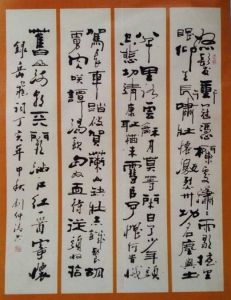 怒髮衝冠憑欄處瀟瀟雨歇擡望
眼仰天長嘯壯懷激烈三十功名塵與土
八千里路雲和月莫等閒白了少年頭
空悲切靖康恥猶未雪臣子恨何時滅
駕長車踏破賀蘭山缺壯志飢餐胡
虜肉笑談渴飲匈奴血待從頭收拾
舊山河朝天闕滿江紅一首寫懷
錄岳飛詞丁亥年中秋劉仲